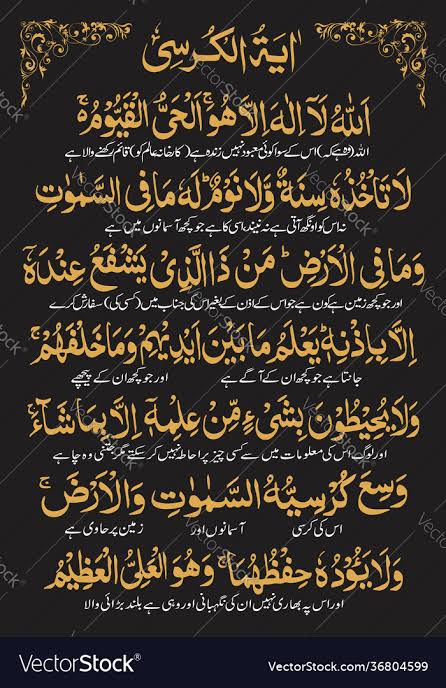 اٰیَةُ الۡکُرۡسِیۡ
اَللّٰهُ لَاۤ اِلٰهَ اِلَّا هُوَۚ اَلۡحَیُّ الۡقَیُّوۡمُ ۚ
اللہ (وہ ہے کہ) اس کے سوا کوئی معبود نہیں زندہ ہے (کارخانہ عالم کو) قائم رکھنے والا ہے
لَا تَاۡخُذُهٗ سِنَةٌ وَّلَا نَوۡمٌ ؕ لَهٗ مَا فِی السَّمٰوٰتِ
نہ اس کو اونگھ آتی ہے نہ نیند، اسی کا ہے جو کچھ آسمانوں میں ہے
وَمَا فِی الۡاَرۡضِ ؕ مَنۡ ذَا الَّذِیۡ یَشۡفَعُ عِنۡدَهٗۤ
اور جو کچھ زمین ہے کون ہے جو اس کے اذن کے بغیر اس کی جناب میں (کسی کی) سفارش کرے
اِلَّا بِاِذۡنِهٖ ؕ یَعۡلَمُ مَا بَیۡنَ اَیۡدِیۡهِمۡ وَمَا خَلۡفَهُمۡ ۚ
جانتا ہے جو کچھ ان کے آگے ہے اور جو کچھ ان کے پیچھے
وَلَا یُحِیۡطُوۡنَ بِشَیۡءٍ مِّنۡ عِلۡمِهٖۤ اِلَّا بِمَا شَآءَ ۚ
اور لوگ اس کی معلومات میں سے کسی چیز پر احاطہ نہیں کر سکتے مگر جتنی وہ چاہے
وَسِعَ کُرۡسِیُّهُ السَّمٰوٰتِ وَالۡاَرۡضَ ۚ
اس کی کرسی آسمانوں اور زمین پر حاوی ہے
وَلَا یَـُٔوۡدُهٗ حِفۡظُهُمَا ۚ وَهُوَ الۡعَلِیُّ الۡعَظِیۡمُ
اور اس پہ بھاری نہیں ان کی نگہبانی اور وہی ہے بلند بڑائی والا
VectorStock®
VectorStock.com/36804599